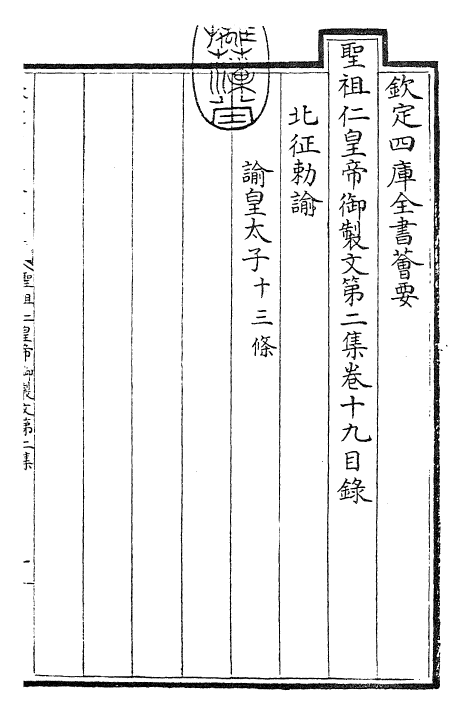 欽定四庫全書薈要
聖祖仁皇帝御製文第二集卷十九目錄
北征勅諭
諭皇太子十三條
聖祖仁皇帝御製文第二集